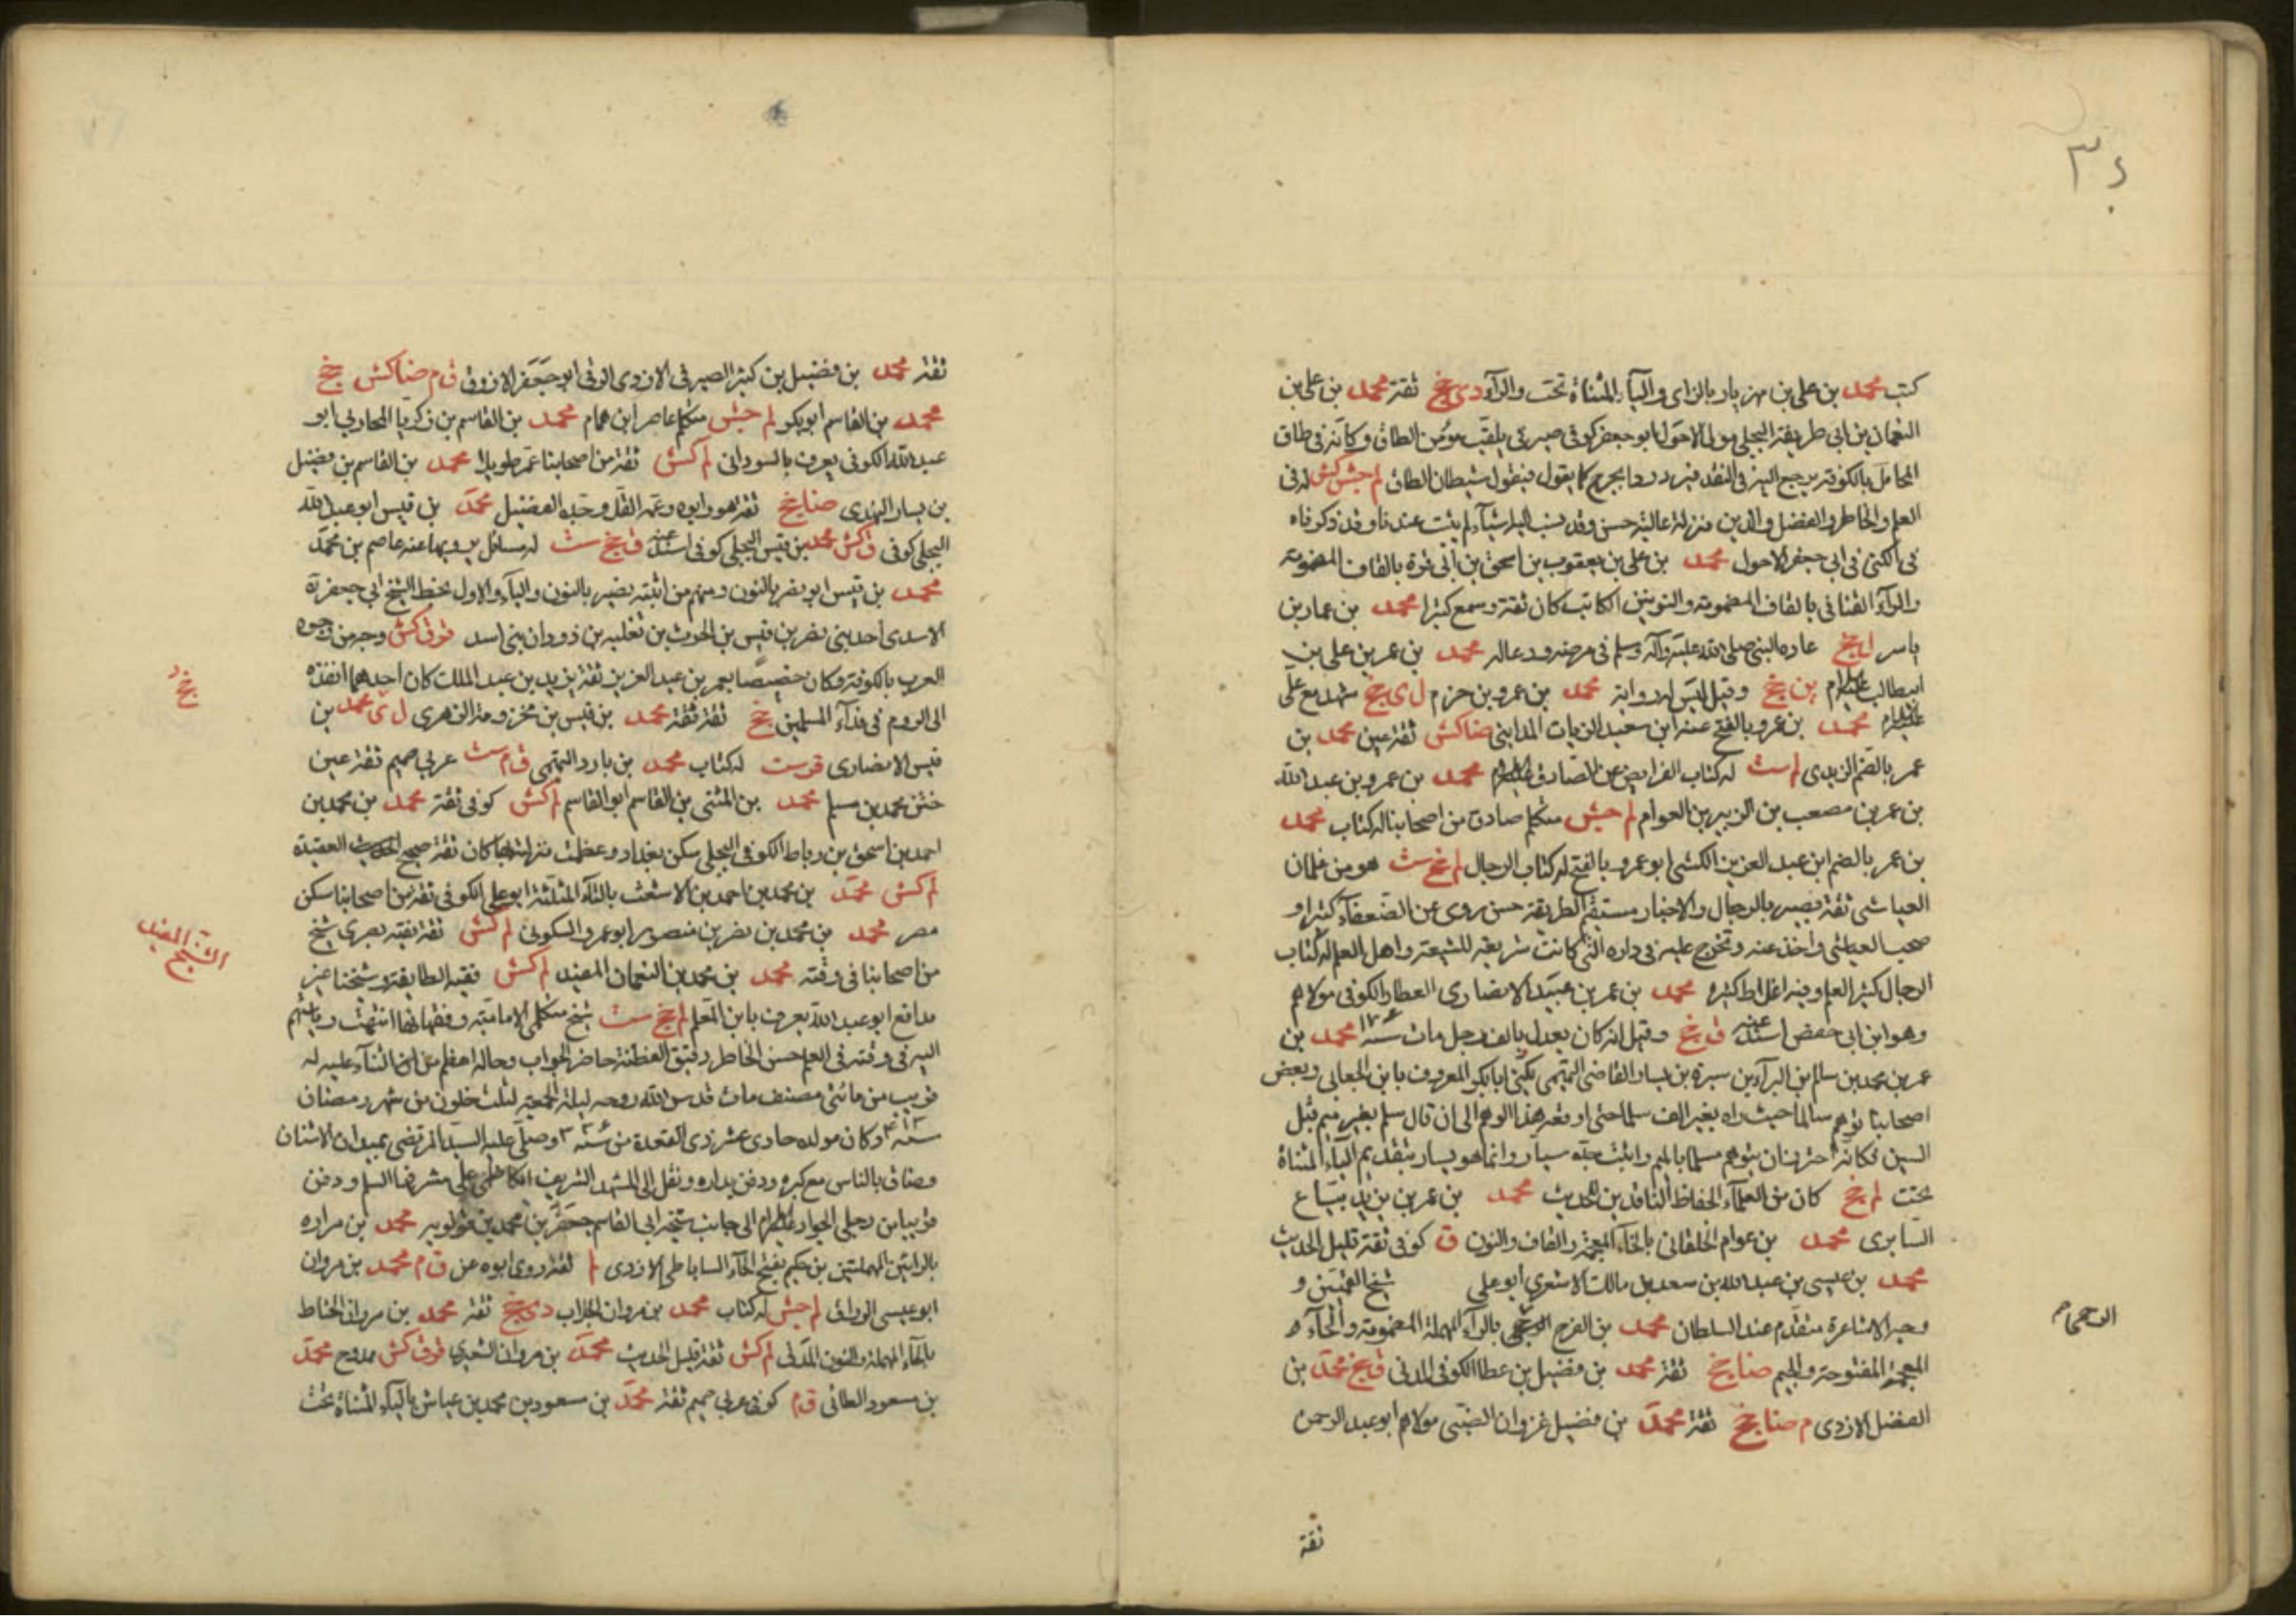 ٣٤
كتب محمد بن على بن مهزيار بالزاى والياء المثناة تحت والراء دى خج ثقة محمد بن على بن
النعمان بن ابى طريفة البجلي مولى الاحول ابو جعفر كوفى صيرفى يلقب مؤمن الطاق وكان دكانه فى طاق
المحامل بالكوفة يرجع اليه فى النقد فيرد ردا يخرج كما يقول فيقول شيطان الطاق لم جش كش له فى
العلم والخاطر والفضل والدين منزلة عالية حسن وقد ينسب اليه اشياء لم يثبت عندنا وقد ذكرناه
فى الكنى فى ابى جعفر الاحول محمد بن على بن يعقوب بن اسحق بن ابى قرة بالقاف المضمومة
والراء القنائى بالقاف المضمومة والنونين الكاتب كان ثقة وسمع كثيرا محمد بن عمار بن
ياسر ل خج عاده النبي صلى الله عليه وآله وسلم فى مرضه ودعا له محمد بن عمر بن على بن
ابيطالب عليه السلام ين خج وقيل ليس له رواية محمد بن عمرو بن حزم ل ى خج شهد مع على
عليه السلام محمد بن عمرو بالفتح ابن سعيد الزيات المداينى ضا كش ثقة عين محمد بن
عمر بالضم الزيدى لم ست له كتاب الفرايض عن الصادق عليه السلام محمد بن عمرو بن عبد الله
بن عمر بن مصعب بن الزبير بن العوام لم جش متكلم صادق من اصحابنا له كتاب محمد
بن عمر بالضم ابن عبد العزيز الكشى ابو عمرو بالفتح له كتاب الرجال لم خج ست هو من غلمان
العياشى ثقة بصير بالرجال والاخبار مستقيم الطريقة حسن روى عن الضعفاء كثيرا و
صحب العياشى واخذ عنه وتخرج عليه فى داره التى كانت شريعة للشيعة واهل العلم له كتاب
الرجال كثير العلم وفيه اغلاط كثيرة محمد بن عمر بن عبيد الانصارى العطار الكوفى مولاهم
وهو ابن ابى حفص اسند عنه ق خج وقيل انه كان يعدل بالف رجل مات سنة محمد بن
عمر بن محمد بن سالم بن البراء بن سبرة بن يسار القاضى التميمى يكنى ابا بكر المعروف بابن الجعابى وبعض
اصحابنا توهم سالما حيث راه بغير الف سلما حتى اوقعه هذا الوهم الى ان قال سلم بغير ميم قبل
السين فكانه احترز ان يتوهم مسلما بالميم واثبت جده سيار وانما هو يسار بتقديم الياء المثناة
تحت لم خج كان من العلماء الحفاظ الناقدين للحديث محمد بن عمر بن يزيد بياع
السابرى محمد بن عوام الخلقانى بالخاء المعجمة والقاف والنون ق كوفى ثقة قليل الحديث
محمد بن عيسى بن عبد الله بن سعد بن مالك الاشعرى ابو على شيخ القميين و
وجه الاشاعرة متقدم عند السلطان محمد بن الفرج الرخجى بالراء المهملة المضمومة والخاء
المعجمة المفتوحة والجيم ضا خج ثقة محمد بن فضيل بن عطا الكوفى المدنى ق خج محمد بن
الفضل الازدى م ضا خج ثقة محمد بن فضيل غزوان الضبى مولاهم ابو عبد الرحمن
ثقة
ثقة محمد بن فضيل بن كثير الصيرفى الازدى الكوفى ابو جعفر الازرق ق م ضا كش خج
محمد بن القاسم ابو بكر لم جش متكلم عاصر ابن همام محمد بن القاسم بن زكريا المحاربي ابو
عبد الله الكوفى يعرف بالسودانى لم كش ثقة من اصحابنا عمر طويلا محمد بن القاسم بن فضيل
بن يسار النهدى ضا خج ثقة هو وابوه وعمه العلا وجده الفضيل محمد بن قيس ابو عبد الله
البجلي كوفى ق كش محمد بن قيس البجلي كوفى اسند عنه ق خج ست له مسائل يرويها عنه عاصم بن محمد
محمد بن قيس ابو نصر بالنون ومنهم من اثبته بصير بالنون والياء والاول بخط الشيخ ابى جعفر ره
الاسدى احد بنى نصر بن قيس بن الحرث بن ثعلبه بن دودان بنى اسد قر ق كش وجه من وجوه
العرب بالكوفة وكان خصيصا بعمر بن عبد العزيز ثقة يزيد بن عبد الملك كان احدهما انفذه
الى الروم فى فداء المسلمين خج ثقة ثقة محمد بن قيس بن مخرمة الزهرى ل ى محمد بن
قيس الانصارى قر ست له كتاب محمد بن مارد التميمى ق م ست عربي صميم ثقة عين
ختن محمد بن مسلم محمد بن المثنى بن القاسم ابو القاسم لم كش كوفى ثقة محمد بن محمد بن
احمد بن اسحق بن رباط الكوفى البجلي سكن بغداد وعظمت منزلته بها كان ثقة صحيح العقيدة
لم كش محمد بن محمد بن احمد بن الاشعث بالثاء المثلثة ابو على الكوفى ثقة من اصحابنا سكن
مصر محمد بن محمد بن نصر بن منصور ابو عمرو السكونى لم كش ثقة ثقة بصرى شيخ
من اصحابنا فى وقته محمد بن محمد بن النعمان المفيد لم كش فقيه الطايفة وشيخنا غير
مدافع ابو عبد الله يعرف بابن المعلم لم خج ست شيخ متكلمى الامامية وفقهائها انتهت رياستهم
اليه فى وقته فى العلم حسن الخاطر دقيق الفطنة حاضر الجواب وحاله اعظم من الثناء عليه له
قريب من مائتى مصنف مات قدس الله روحه ليلة الجمعة لثلث خلون من شهر رمضان
سنة ٤١٣ وكان مولده حادى عشر ذى القعدة من سنة ٣٣٦ وصلى عليه السيد المرتضى بميدان الاشنان
وضاق بالناس مع كبره ودفن بداره ونقل الى المشهد الشريف الكاظمى على مشرفه السلم ودفن
قريبا من رجلى الجواد عليه السلام الى جانب شيخه ابى القاسم جعفر بن محمد بن قولويه محمد بن مراره
بالرايين المهملتين بن حكيم بفتح الحاء الساباطى الازدى لم ثقة روى ابوه عن ق م محمد بن مروان
ابو عيسى الوراق لم جش له كتاب محمد بن مروان الجلاب دى خج ثقة محمد بن مروان الحناط
بالحاء المهملة والنون المدنى لم كش ثقة قليل الحديث محمد بن مروان الشعيرى قر ق كش ممدوح محمد
بن مسعود الطائى ق م كوفى عربي صميم ثقة محمد بن مسعود بن محمد بن عياش بالياء المثناة تحت
خج
الشيخ المفيد